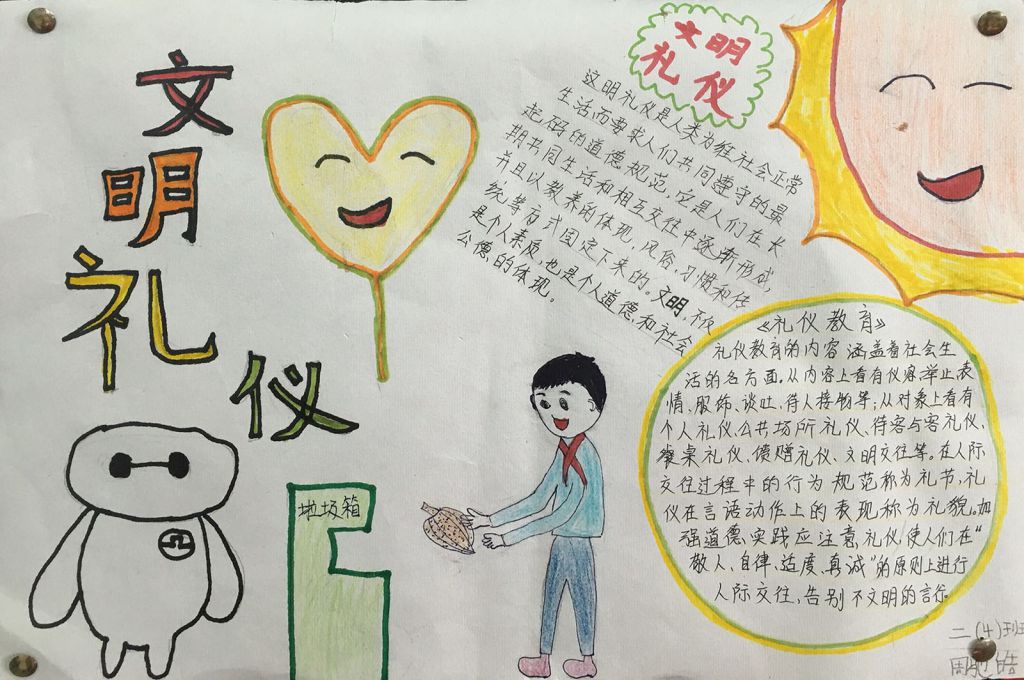 文
明
礼
仪
文明
礼仪
这明礼仪是人类为维社会正常
生活而要求人们共同遵守的最
起码的道德规范，它是人们在长
期共同生活和相互交往中逐渐形成，
并且以教养的体现，风俗，习惯和传
统等方式固定下来的。文明，不仅
是个人素质，也是个人道德，和社会
公德，的体现。
《礼仪教育》
礼仪教育的内容涵盖着社会生
活的各方面。从内容上看有仪容、举止、表
情、服饰、谈吐、待人接物等；从对象上看有
个人礼仪、公共场所礼仪、待客与客礼仪、
餐桌礼仪、馈赠礼仪、文明交往等。在人际
交往过程中的行为规范称为礼节，礼
仪在言语动作上的表现称为礼貌。加
强道德、实践应注意，礼仪，使人们在“
敬人、自律、适度、真诚”的原则上进行
人际交往，告别不文明的言行。
垃圾箱
二(4)班
周 皓